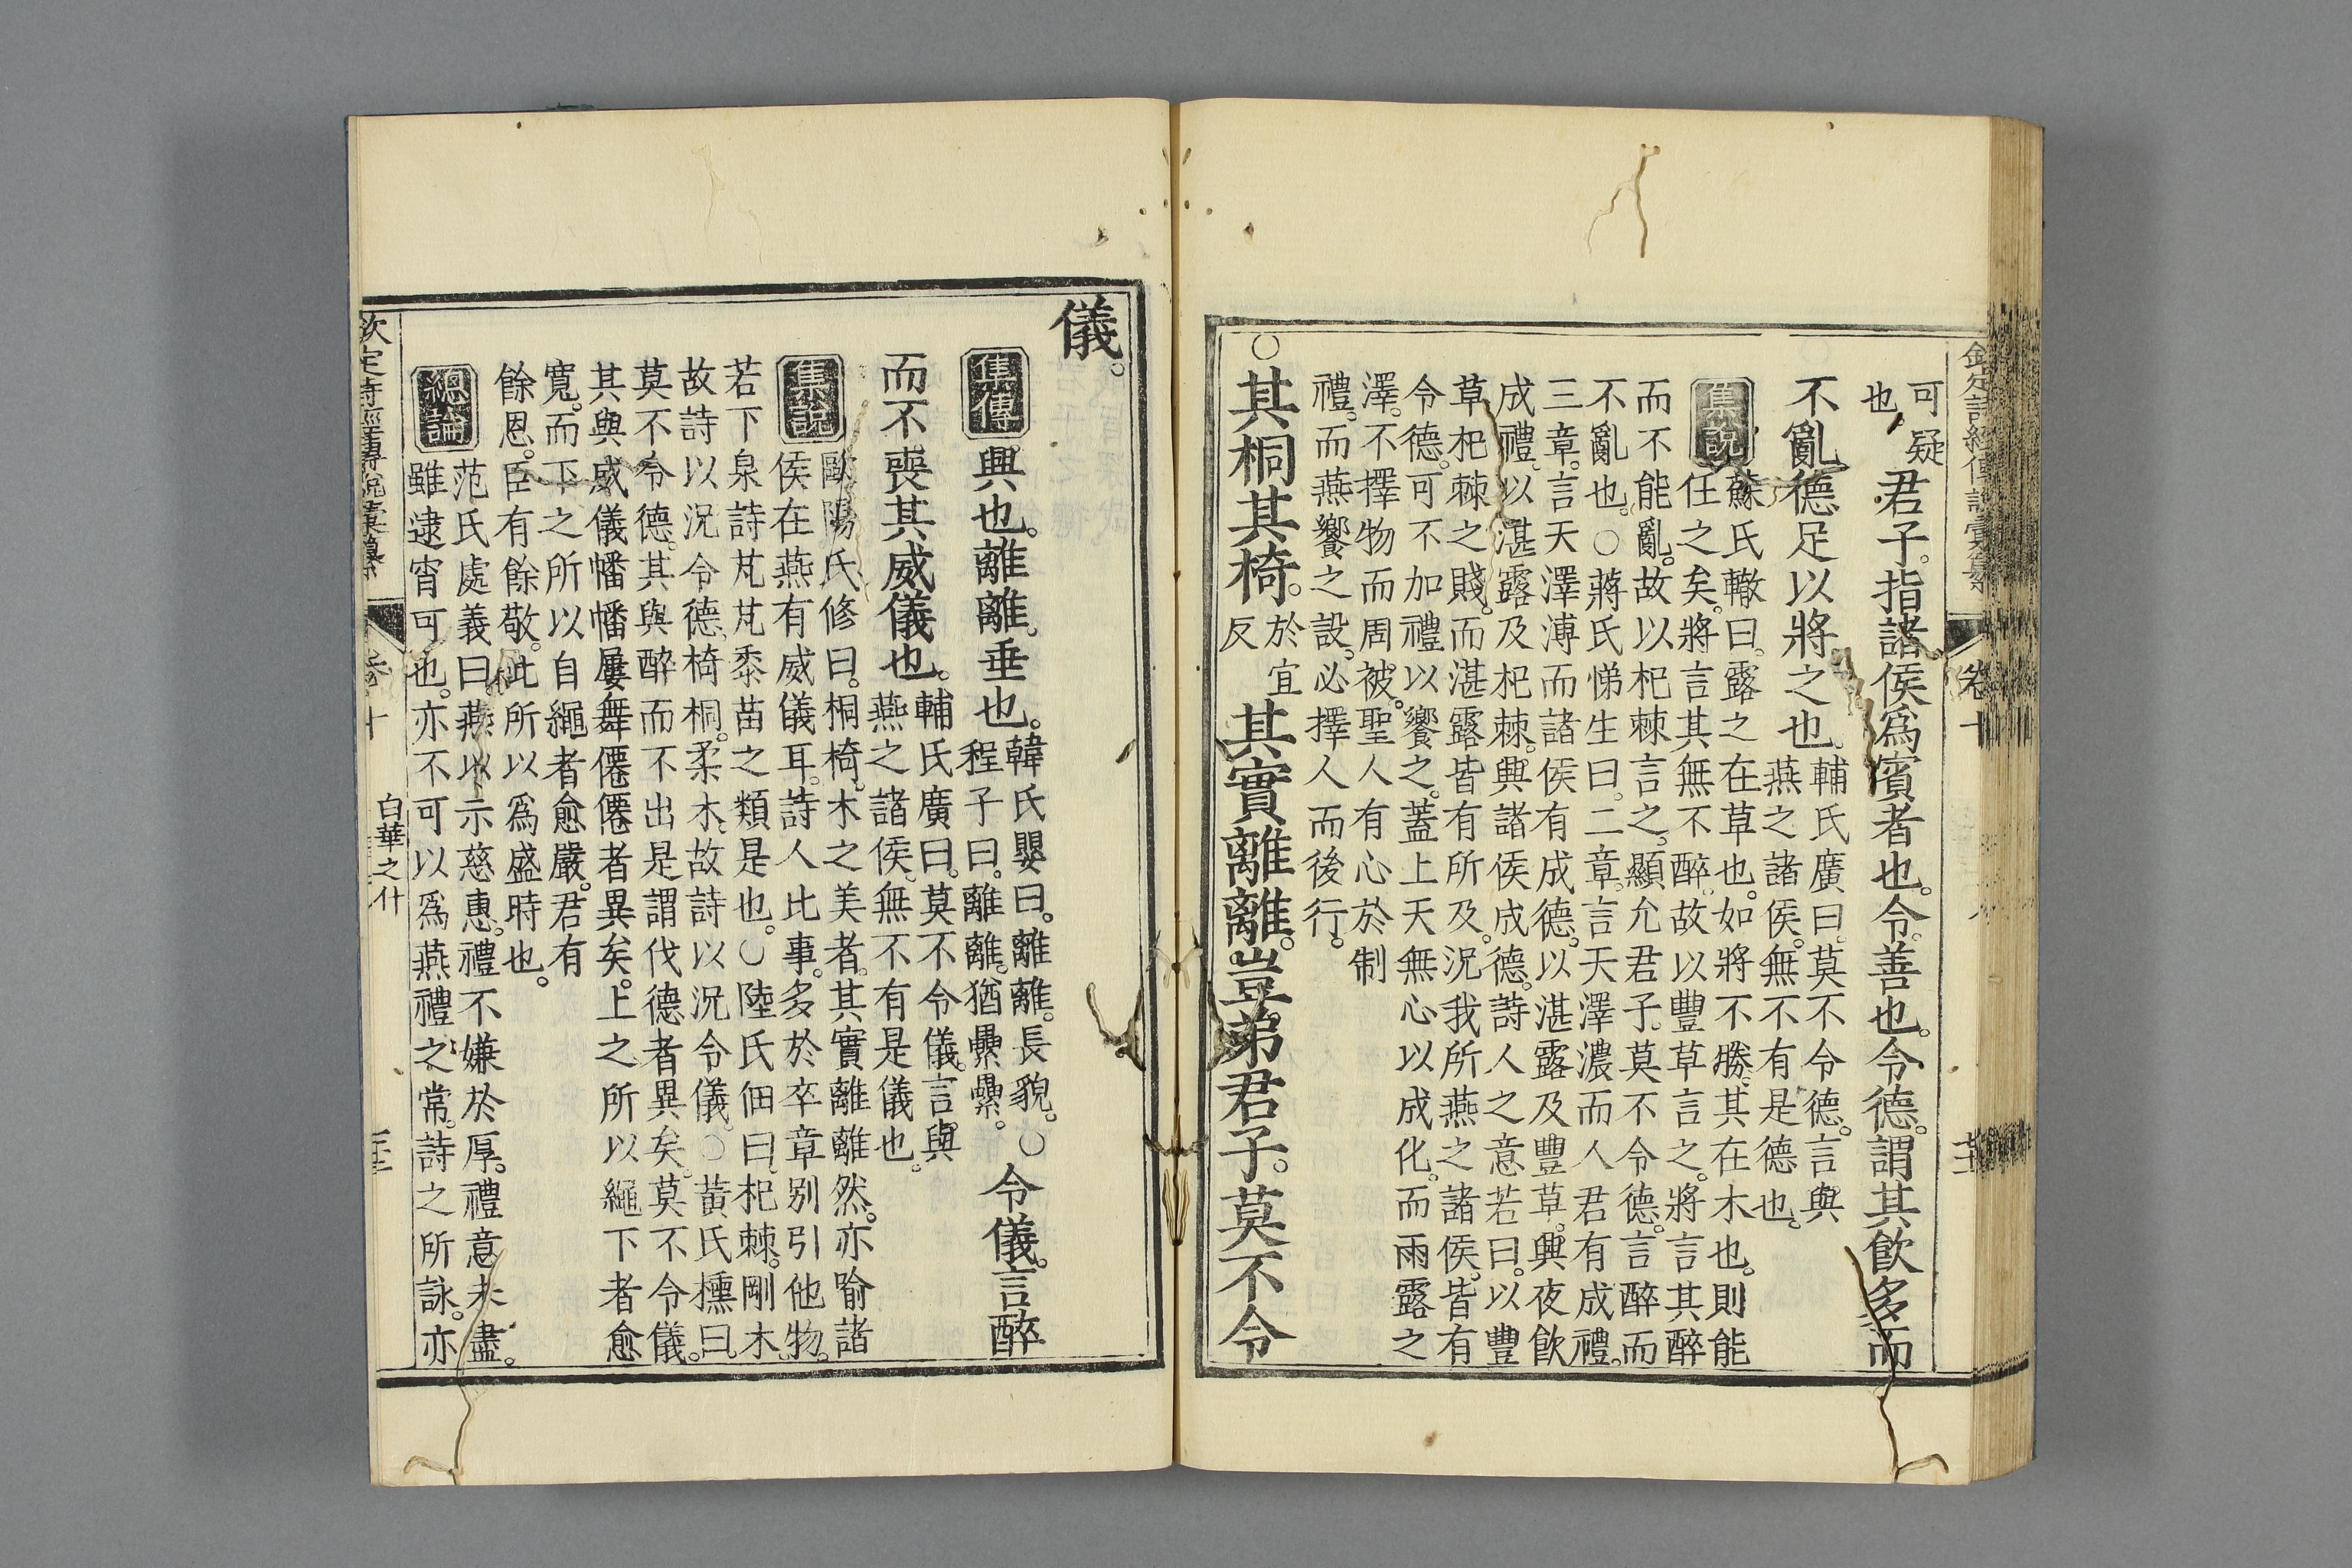 欽定詩經傳說彙纂 卷十
可疑
也
君子。指諸侯爲賓者也。令。善也。令德。謂其飲多而
不亂。德足以將之也。
輔氏廣曰。莫不令德。言與
燕之諸侯。無不有是德也。
集說
蘇氏轍曰。露之在草也。如將不勝。其在木也。則能
任之矣。將言其無不醉。故以豐草言之。將言其醉
而不能亂。故以杞棘言之。顯允君子。莫不令德。言醉而
不亂也。○蔣氏悌生曰。二章。言天澤濃而人君有成禮。
三章。言天澤溥而諸侯有成德。以湛露及豐草。興夜飲
成禮。以湛露及杞棘。興諸侯成德。詩人之意若曰。以豐
草杞棘之賤。而湛露皆有所及。況我所燕之諸侯。皆有
令德。可不加禮以饗之。蓋上天無心以成化。而雨露之
澤。不擇物而周被。聖人有心於制
禮。而燕饗之設。必擇人而後行。
○其桐其椅。於宜反其實離離。豈弟君子。莫不令
儀。
集傳
興也。離離。垂也。
韓氏嬰曰。離離。長貌。○
程子曰。離離。猶纍纍。
令儀。言醉
而不喪其威儀也。
輔氏廣曰。莫不令儀。言與
燕之諸侯。無不有是儀也。
集說
歐陽氏修曰。桐椅。木之美者。其實離離然。亦喻諸
侯在燕有威儀耳。詩人比事。多於卒章別引他物。
若下泉詩芃芃黍苗之類是也。○陸氏佃曰。杞棘。剛木。
故詩以況令德。椅桐。柔木。故詩以況令儀。○黃氏櫄曰。
莫不令德。其與醉而不出是謂伐德者異矣。莫不令儀。
其與威儀幡幡屢舞僊僊者異矣。上之所以繩下者愈
寬。而下之所以自繩者愈嚴。君有
餘恩。臣有餘敬。此所以爲盛時也。
總論
范氏處義曰。燕以示慈惠。禮不嫌於厚。禮意未盡。
雖逮宵可也。亦不可以爲燕禮之常。詩之所詠。亦
欽定詩經傳說彙纂 卷十 白華之什